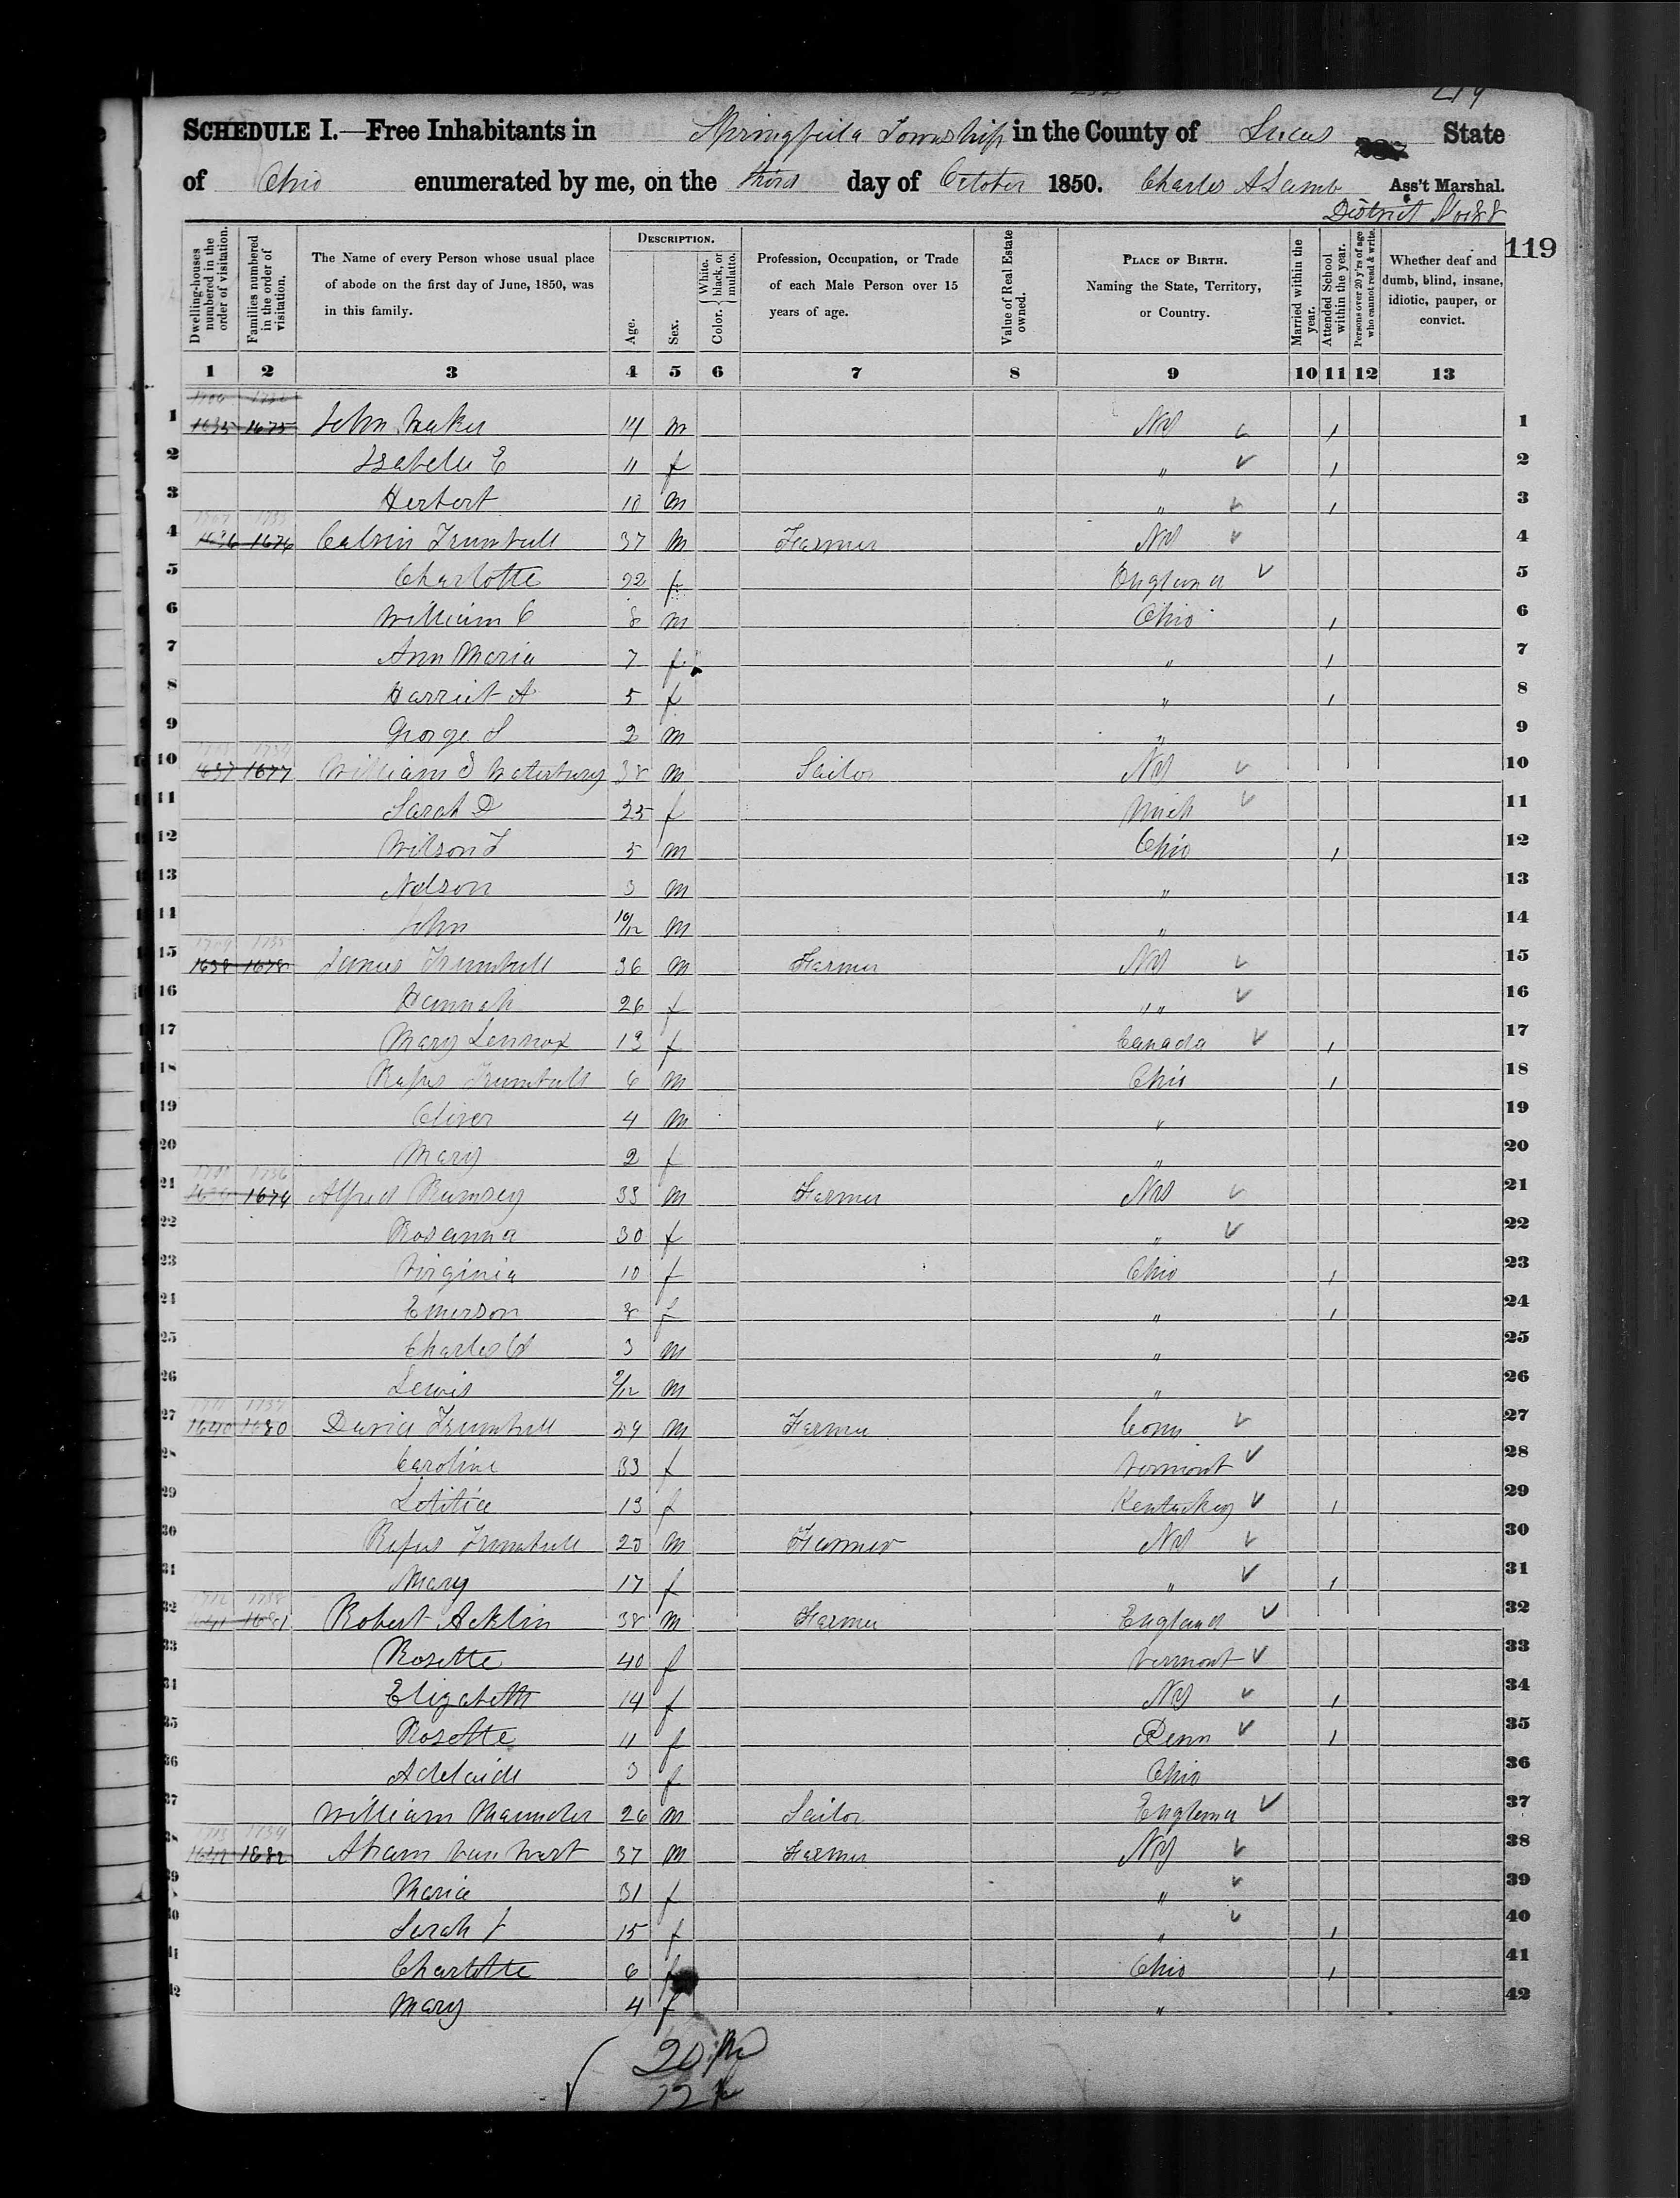 219
SCHEDULE I.—Free Inhabitants in Springfield Township in the County of Lucas State
of Ohio enumerated by me, on the third day of October 1850. Charles A Lamb Ass't Marshal.
District No 88
119
Dwelling-houses numbered in the order of visitation.
Families numbered in the order of visitation.
The Name of every Person whose usual place of abode on the first day of June, 1850, was in this family.
DESCRIPTION.
Age.
Sex.
Color. { White, black, or mulatto.
Profession, Occupation, or Trade of each Male Person over 15 years of age.
Value of Real Estate owned.
PLACE OF BIRTH.
Naming the State, Territory, or Country.
Married within the year.
Attended School within the year.
Persons over 20 y'rs of age who cannot read & write.
Whether deaf and dumb, blind, insane, idiotic, pauper, or convict.
1 2 3 4 5 6 7 8 9 10 11 12 13
1 1635 1675 John 14 m NY 1 1
2 Isabelle E 11 f " 1 2
3 Herbert 10 m " 1 3
4 1636 1676 Calvin Trumbull 37 m Farmer NY 4
5 Charlotte f England 5
6 William C 8 m Ohio 1 6
7 Ann Maria 7 f " 1 7
8 Harriet A 5 f " 1 8
9 George S 2 m " 9
10 1637 1677 William S Waterbury 38 m Sailor NY 10
11 Sarah D 25 f Mich 11
12 Wilson T 5 m Ohio 1 12
13 Nelson 3 m " 13
14 John 10/12 m " 14
15 1638 1678 James Trumbull 36 m Farmer NY 15
16 Hannah 26 f " " 16
17 Mary Lennox 13 f Canada 1 17
18 Rufus Trumbull 6 m Ohio 1 18
19 Oliver 4 m " 19
20 Mary 2 f " 20
21 1679 Alfred Rumsey 33 m Farmer NY 21
22 Rosanna 30 f " 22
23 Virginia 10 f Ohio 1 23
24 Emerson 8 f " 1 24
25 Charles 3 m " 25
26 Lewis m " 26
27 1640 1680 David Trumbull 59 m Farmer Conn 27
28 Caroline 33 f Vermont 28
29 Letitia 13 f Kentucky 1 29
30 Rufus Trumbull m Farmer NY 30
31 Mary 17 f " 1 31
32 1641 1681 Robert Acklin 38 m Farmer England 32
33 Rosette 40 f Vermont 33
34 Elizabeth 14 f NY 1 34
35 Rosette 11 f Penn 1 35
36 Adelaide 3 f Ohio 36
37 William Maunder 26 m Sailor England 37
38 1642 1682 Abram Van Wart 37 m Farmer NY 38
39 Maria 31 f " 39
40 Sarah 15 f " 1 40
41 Charlotte 6 f Ohio 1 41
42 Mary 4 f " 42
20 m
22 f